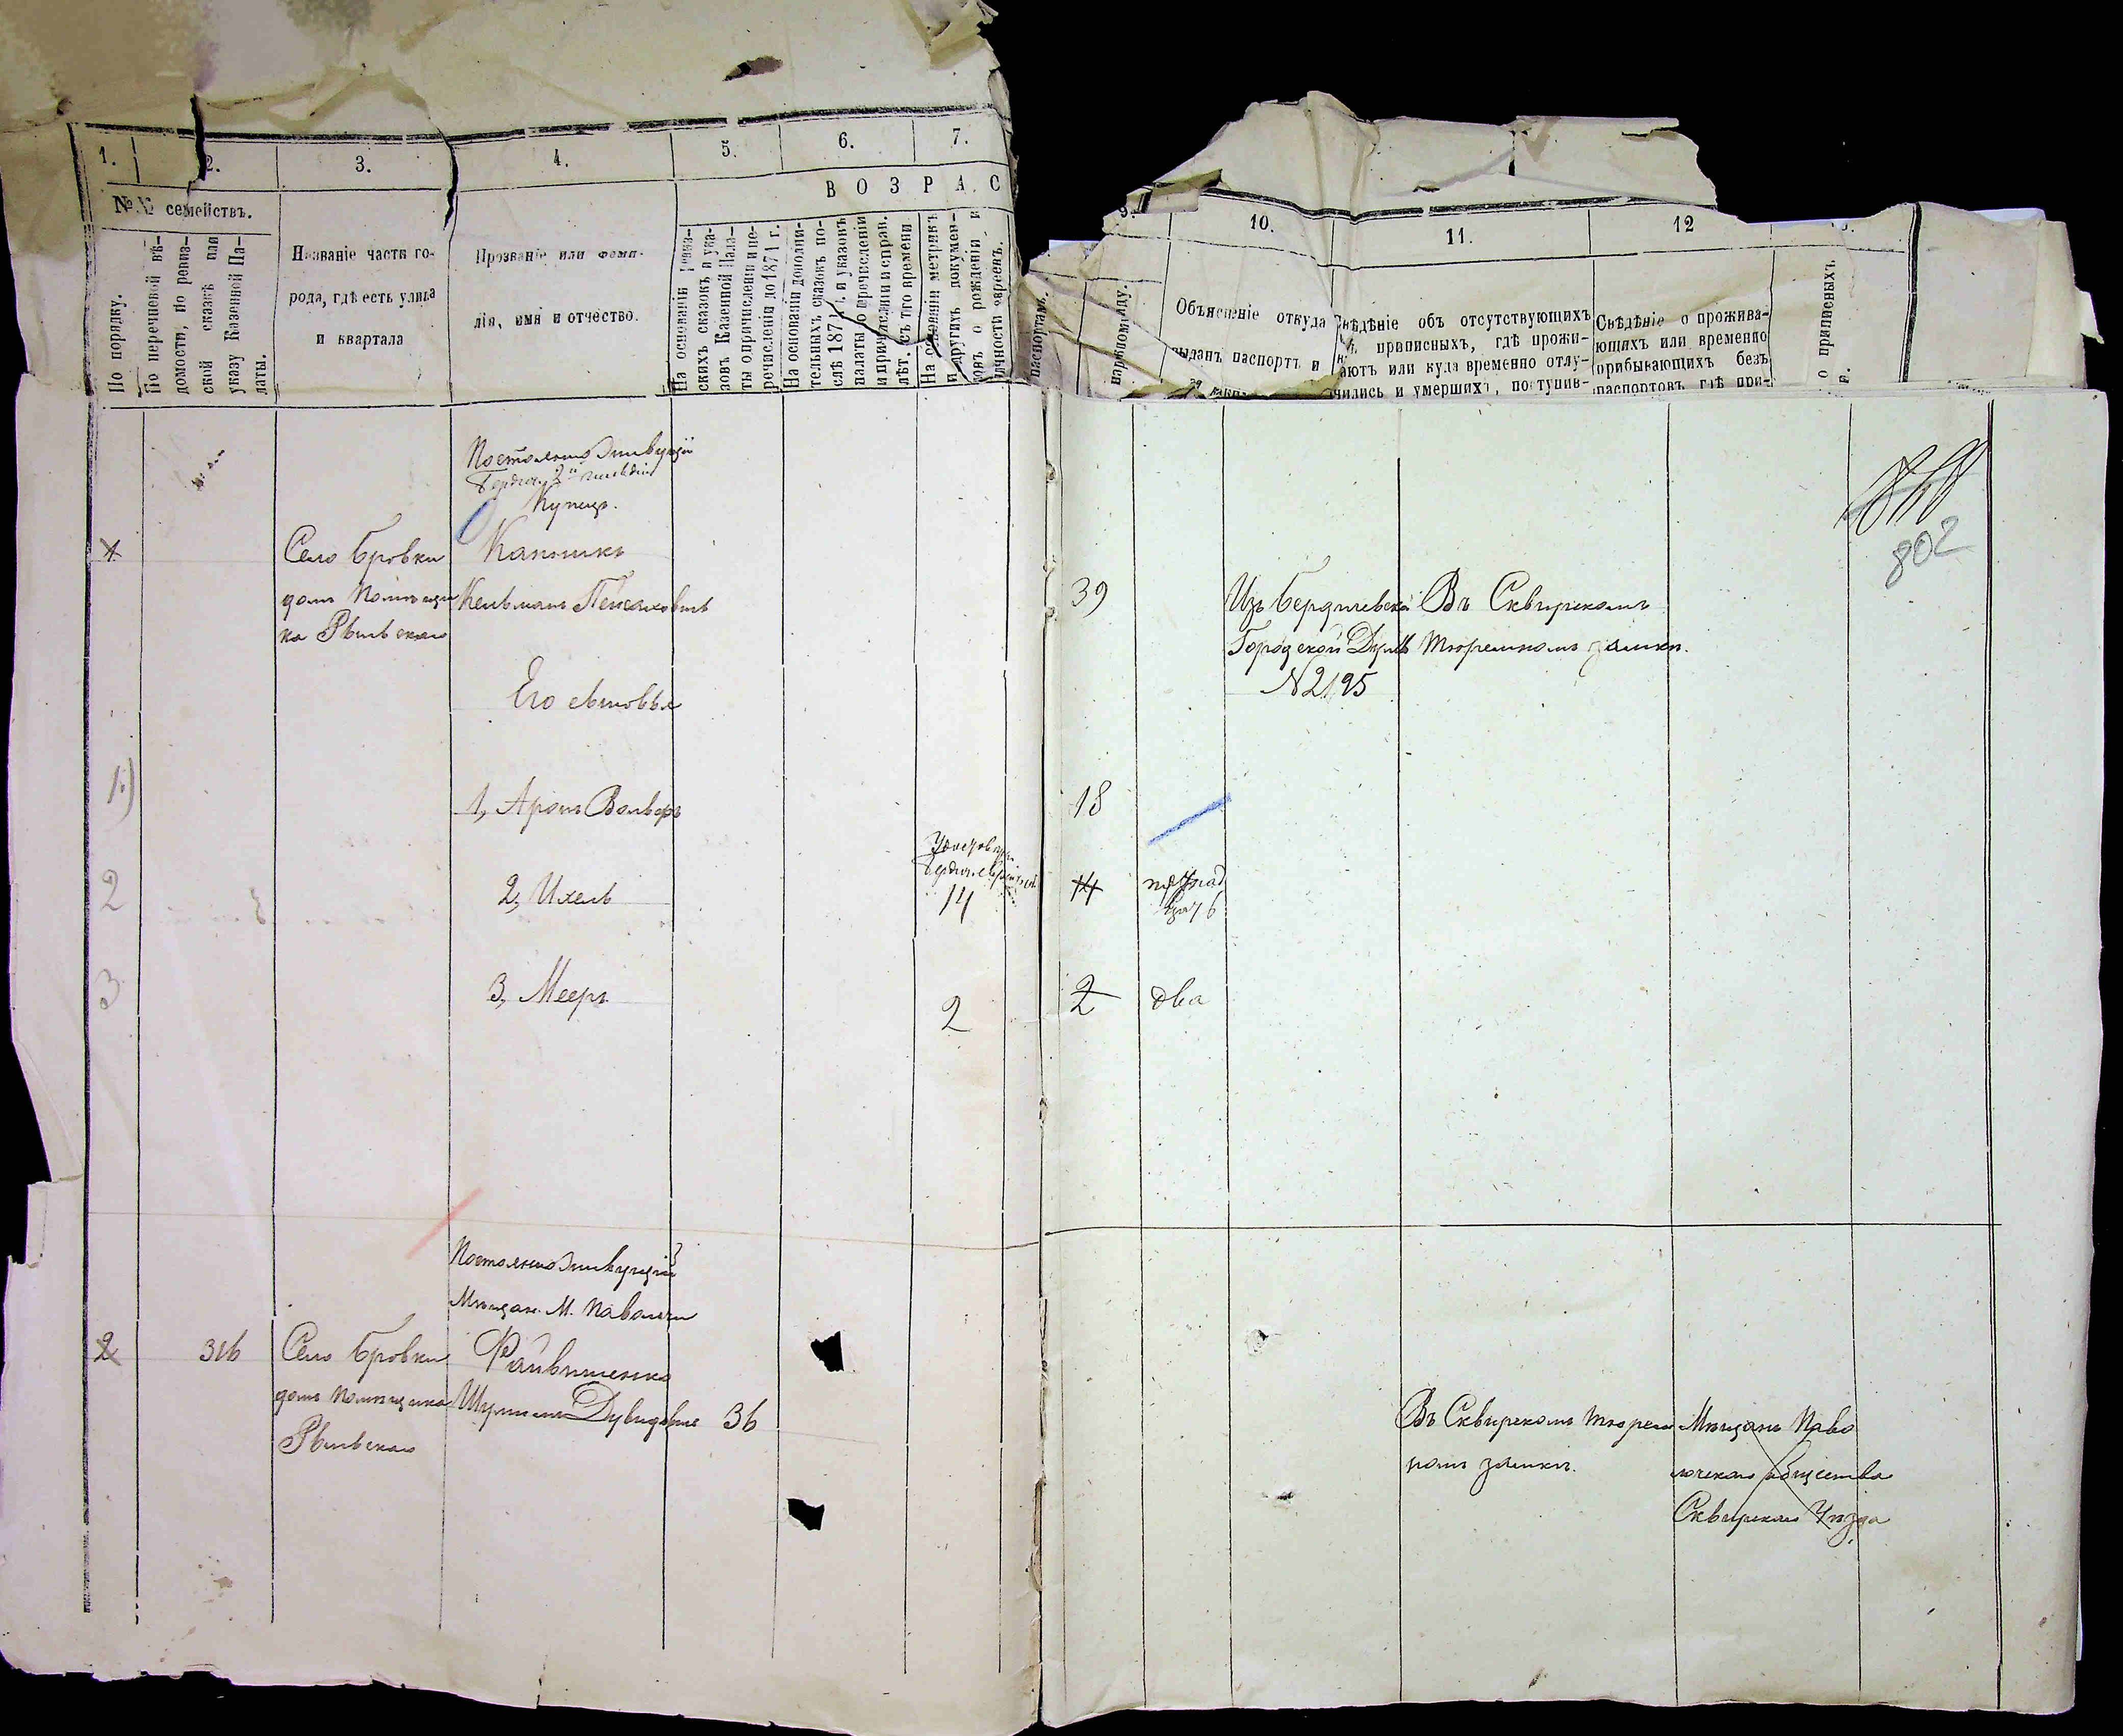 1.
2.
3.
4.
5.
6.
7.
№№ семействъ.
В О З Р А С
По порядку.
По перечневой вѣ-
домости, по ревиз-
ской сказкѣ или
указу Казенной Па-
латы.
Названіе части го-
рода, гдѣ есть улица
и квартала
Прозваніе или фами-
лія, имя и отчество.
На основаніи ревиз-
скихъ сказокъ и ука-
зовъ Казенной Пала-
ты о причисленіи и пе-
речисленіи до 1871 г.
На основаніи дополни-
тельныхъ сказокъ по-
слѣ 1871 г. и указовъ
палаты о перечисленіи
и причисленіи и справ.
лѣт. съ того времени
На основаніи метрикъ
и другихъ докумен-
товъ о рожденіи и
личности евреевъ.
9.
10.
11.
12
паспортамъ.
наружному виду.
Объясненіе откуда
выданъ паспортъ и
Свѣдѣніе объ отсутствующихъ
приписныхъ, гдѣ прожи-
ваютъ или куда временно отлу-
чились и умершихъ, поступив-
Свѣдѣніе о прожива-
ющихъ или временно
прибывающихъ безъ
паспортовъ гдѣ при-
о приписныхъ.
Постоянно живущій
Бердич. 2й гильдіи
Купецъ.
1
Село Бровки
домъ Помѣщи
ка Рыльскаго
Капникъ
Кельманъ Пейсаховичъ
39
Изъ Бердичевской
Городской Думы
N 2195
Въ Сквирскомъ
тюремномъ замкѣ.
802
Его сыновья
1)
1, Аронъ Вольфъ
18
2
2, Ихель
14
14
3
3, Мееръ
2
2
два
Постоянно живущій
Мѣщан. М. Паволочи
2
316
Село Бровки
домъ Помѣщика
Рыльскаго
Файвишенко
Шулимъ Дувидовичъ
36
Въ Сквирскомъ тюрем
номъ замкѣ.
Мѣщанъ Паво
лочскаго общества
Сквирскаго Уѣзда